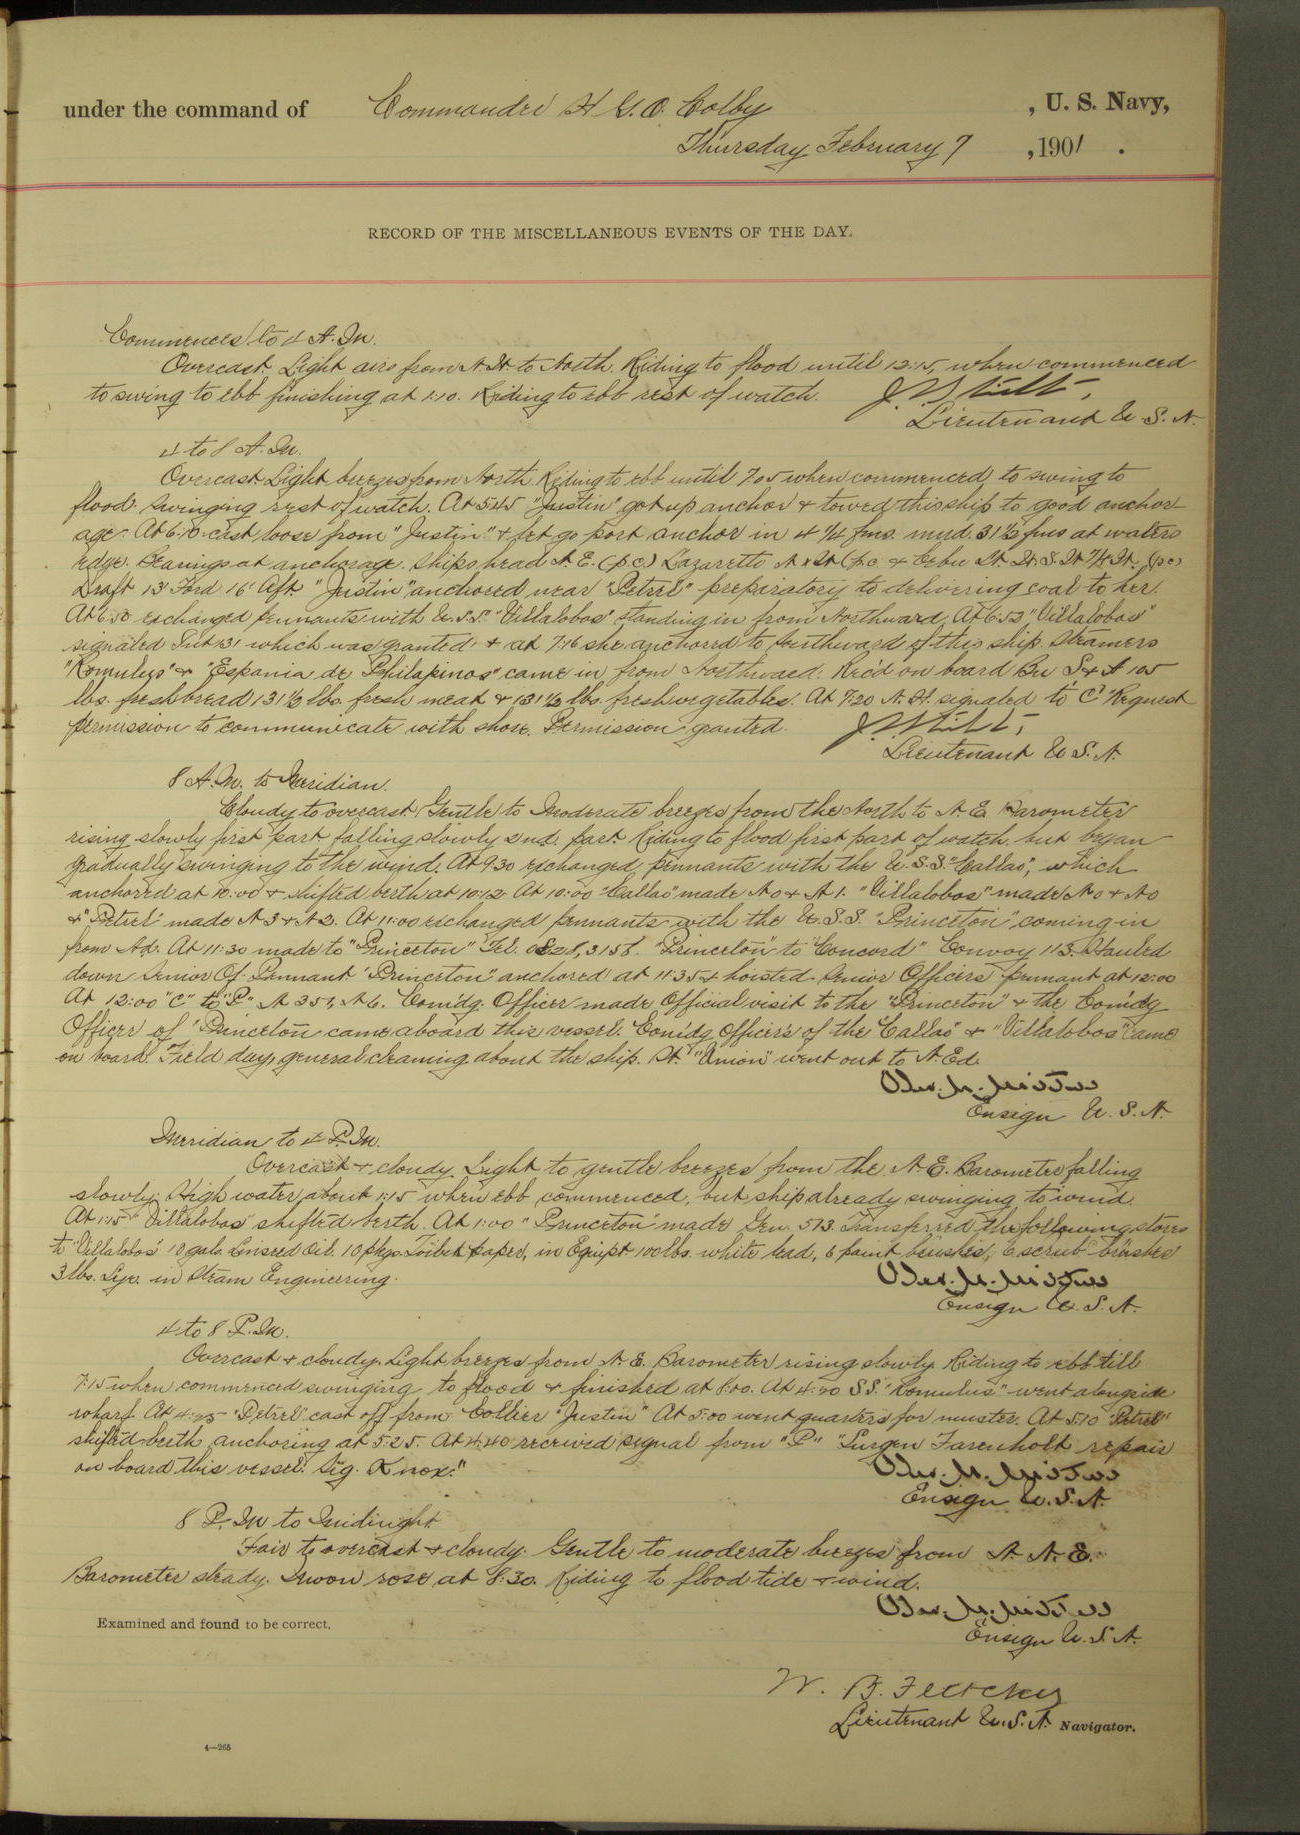 under the command of Commander H. G. O. Colby, U. S. Navy,
Thursday February 7, 1901.
RECORD OF THE MISCELLANEOUS EVENTS OF THE DAY.
Commences to 4 A.M.
Overcast. Light airs from N.N. to North. Riding to flood until 12:15, when commenced
to swing to ebb finishing at 1:10. Riding to ebb rest of watch.
Lieutenant U.S.N.
4 to 8 A.M.
Overcast. Light breezes from North. Riding to ebb until 7:05 when commenced to swing to
flood. Swinging rest of watch. At 5:45 "Justin" got up anchor & towed this ship to good anchor-
age. At 6:10 cast loose from "Justin" & let go port anchor in 4 1/4 fms. mud 31 1/2 fms at waters
edge. Bearings at anchorage. Ships head N.E. (p.c.) Lazaretto (p.c. & Cebu (p.c.)
Draft 13' Ford 16' Aft. "Justin" anchored near "Petrel" preparatory to delivering coal to her.
At 6:50 exchanged pennants with U.S.S. "Villalobos" standing in from Northward. At 6:52 "Villalobos"
signaled Int 131 which was granted & at 7:16 she anchored to Southward of this ship. Steamers
"Romulus" & "Espania de Philapinos" came in from Northward. Rec'd on board Bu S & A 105
lbs. fresh bread 131 1/2 lbs. fresh meat & 131 1/2 lbs. fresh vegetables. At 7:20 signaled to C "Request
permission to communicate with shore. Permission granted.
Lieutenant U.S.N.
8 A.M. to Meridian.
Cloudy to overcast. Gentle to Moderate breezes from the North to N.E. Barometer
rising slowly first part falling slowly 2nd. part. Riding to flood first part of watch but began
gradually swinging to the wind. At 9:30 exchanged pennants with the U.S.S. "Callao", which
anchored at 10:00 & shifted berth at 10:12. At 10:00 "Callao" made No & N 1. "Villalobos" made No & No
& "Petrel" made N 3 & N 2. At 11:00 exchanged pennants with the U.S.S. "Princeton" coming in
from Nd. At 11:30 made to "Princeton" Tel. 0828, 3158. "Princeton" to "Concord" Convoy 113. Hauled
down Senior Of. Pennant. "Princeton" anchored at 11:35 & hoisted Senior Officers pennant at 12:00
At 12:00 "C" to "P" N 351, N 6. Comdg. Officer made Official visit to the "Princeton" & the Comdg
Officer of "Princeton" came aboard this vessel. Comdg Officers of the "Callao" & "Villalobos" came
on board. Field day, general cleaning about the ship. St. "Union" went out to N.Ed.
Ensign U.S.N.
Meridian to 4 P.M.
Overcast & cloudy. Light to gentle breezes from the N.E. Barometer falling
slowly. High water about 1:15 when ebb commenced, but ship already swinging to wind.
At 1:15 "Villalobos" shifted berth. At 1:00 "Princeton" made Gen. 513. Transferred the following stores
to "Villalobos" 10 gals. Linseed Oil. 10 pkgs. Toilet paper, in Equipt 100 lbs. white lead, 6 paint brushes, 6 scrub brushes
3 lbs. Lye. in Steam Engineering.
Ensign U.S.N.
4 to 8 P.M.
Overcast & cloudy. Light breezes from N.E. Barometer rising slowly. Riding to ebb till
7:15 when commenced swinging to flood & finished at 8:00. At 4:20 S.S. "Romulus" went alongside
wharf. At 4:25 "Petrel" cast off from Collier "Justin" At 5:00 went quarters for muster. At 5:10 "Petrel"
shifted berth, anchoring at 5:25. At 4:40 received signal from "P" "Surgeon Farenholt repair
on board this vessel. Sig. Knox."
Ensign U.S.N.
8 P.M to Midnight.
Fair to overcast & cloudy. Gentle to moderate breezes from N.N.E.
Barometer steady. Moon rose at 8:30. Riding to flood tide & wind.
Examined and found to be correct.
Ensign U.S.N.
Lieutenant U.S.N. Navigator.
4—265